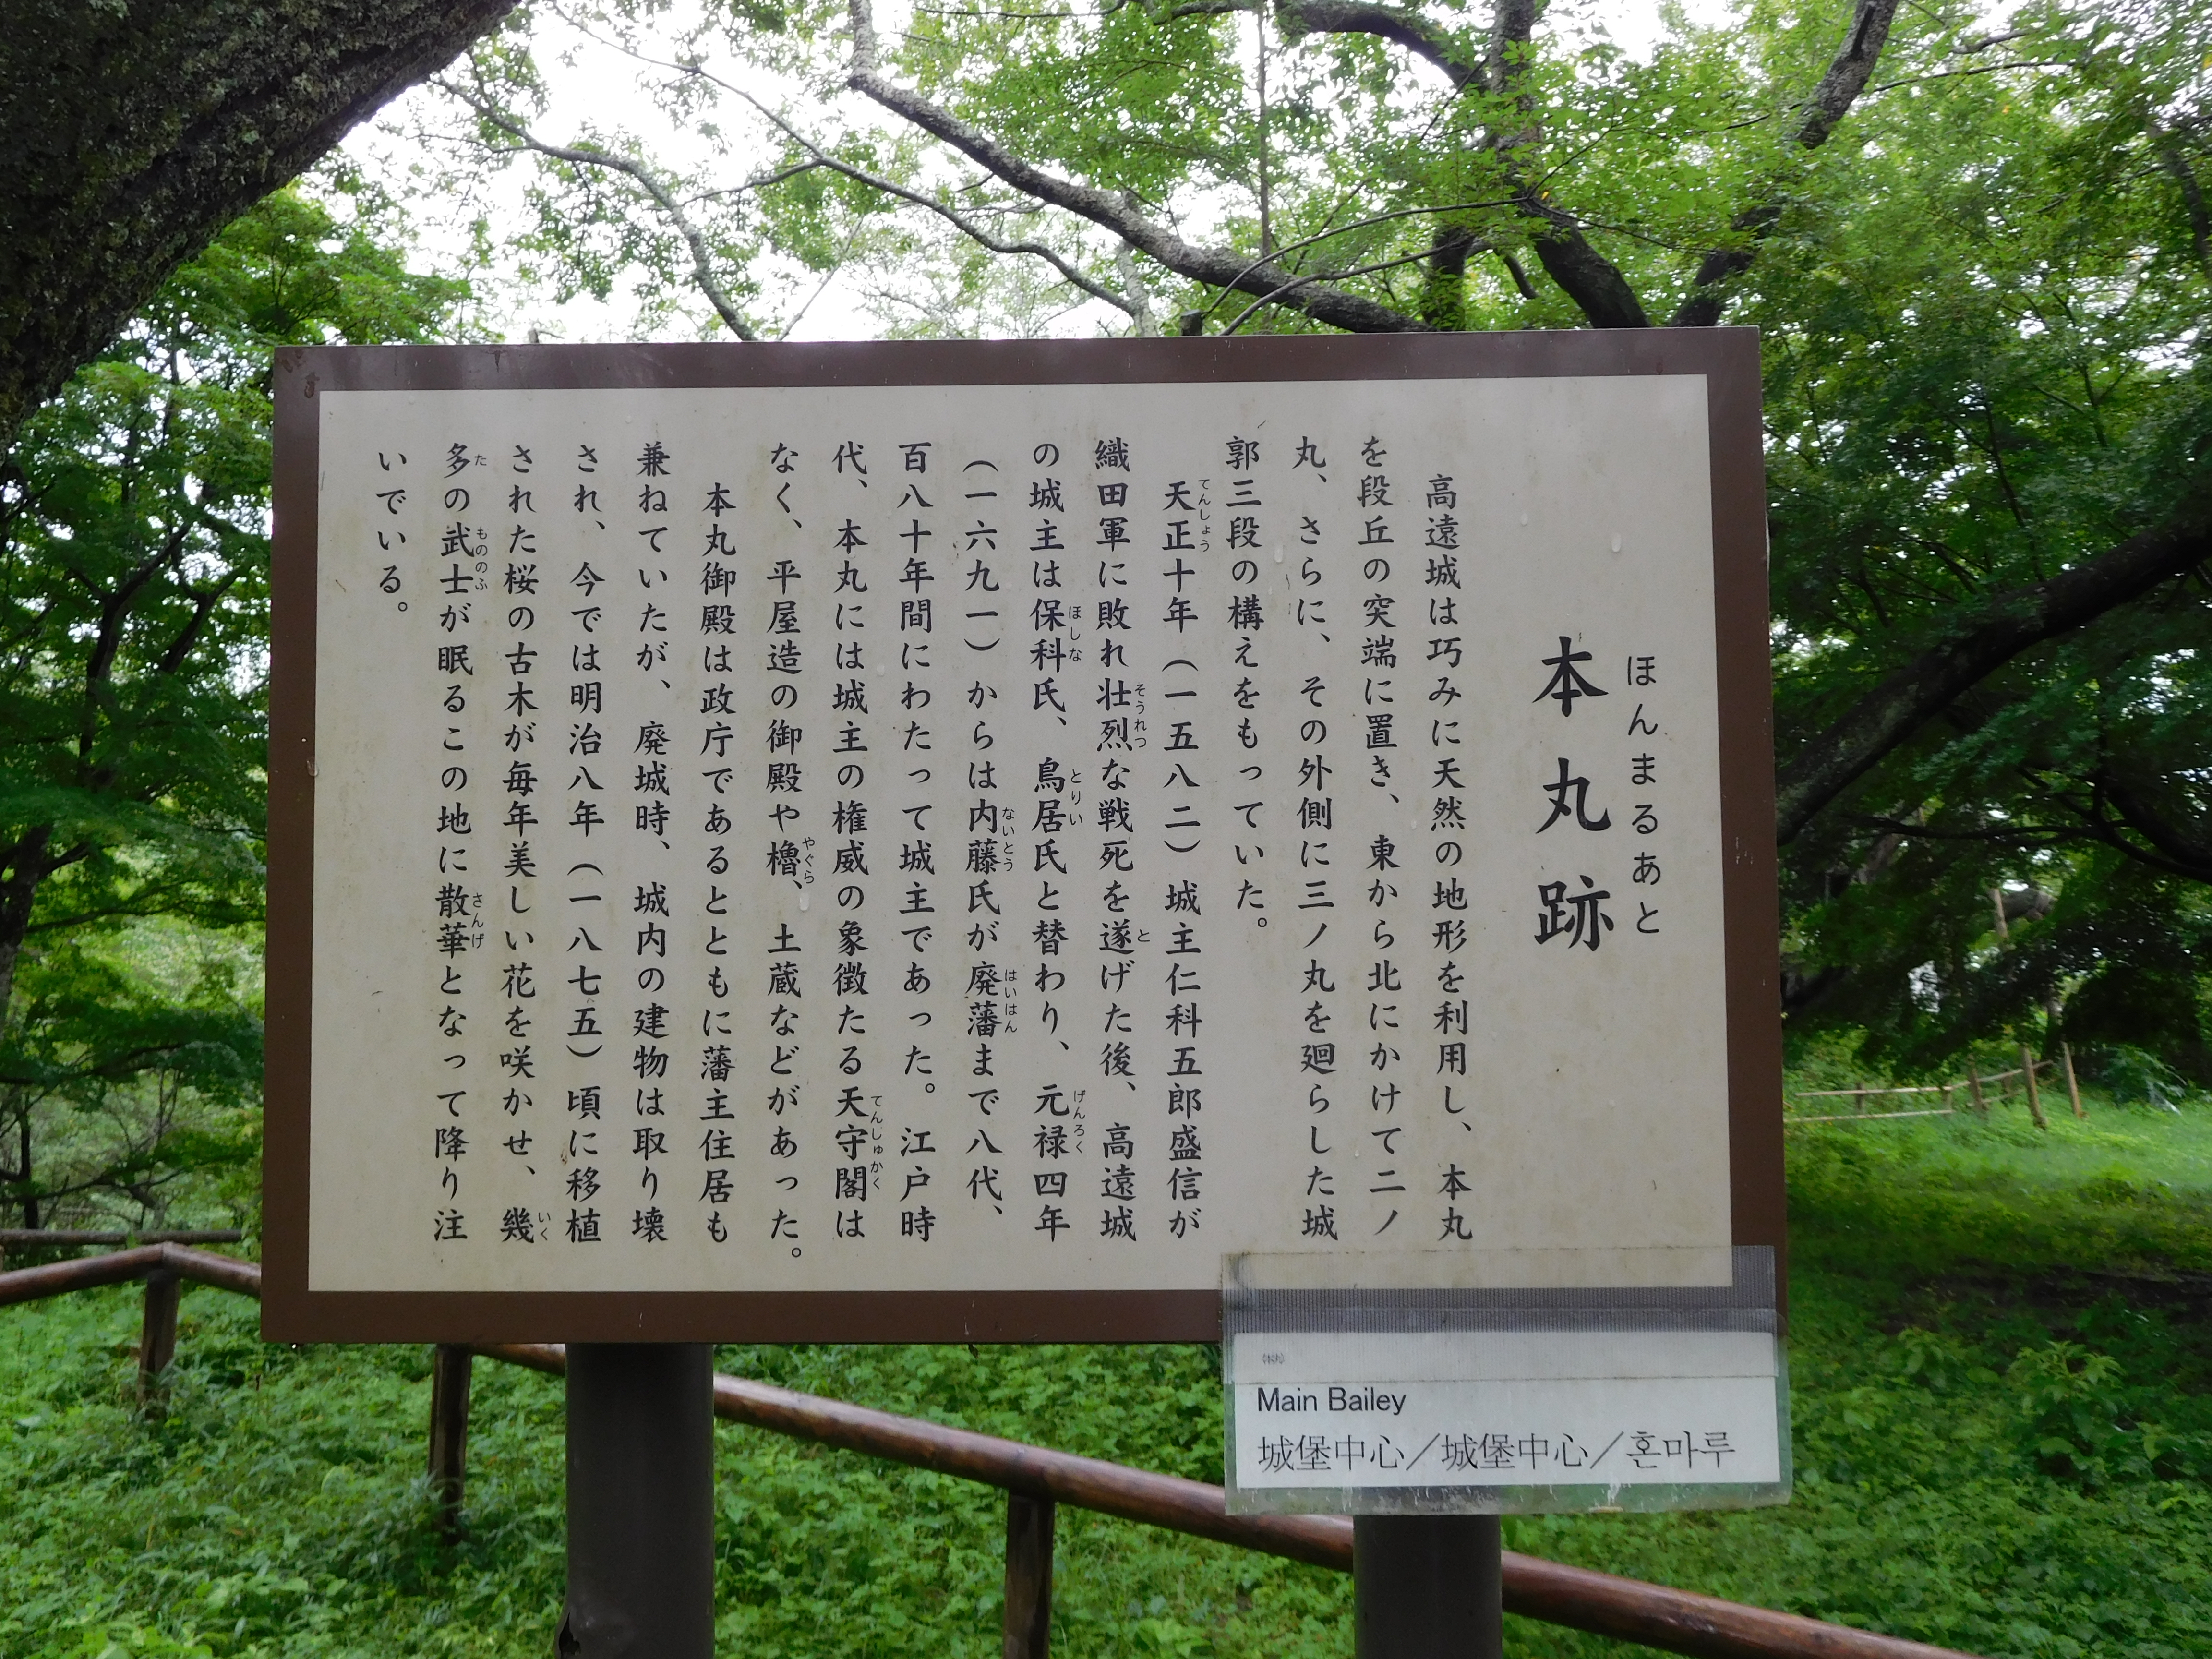 ほんまるあと
本丸跡
高遠城は巧みに天然の地形を利用し、本丸
を段丘の突端に置き、東から北にかけて二ノ
丸、さらに、その外側に三ノ丸を廻らした城
郭三段の構えをもっていた。
天正十年（一五八二）城主仁科五郎盛信が
てんしょう
織田軍に敗れ壮烈な戦死を遂げた後、高遠城
そうれつ
と
の城主は保科氏、鳥居氏と替わり、元禄四年
ほしな
とりい
げんろく
（一六九一）からは内藤氏が廃藩まで八代、
ないとう
はいはん
百八十年間にわたって城主であった。江戸時
代、本丸には城主の権威の象徴たる天守閣は
てんしゅかく
なく、平屋造の御殿や櫓、土蔵などがあった。
やぐら
本丸御殿は政庁であるとともに藩主住居も
兼ねていたが、廃城時、城内の建物は取り壊
され、今では明治八年（一八七五）頃に移植
された桜の古木が毎年美しい花を咲かせ、幾
いく
多の武士が眠るこの地に散華となって降り注
た
もののふ
さんげ
いでいる。
Main Bailey
城堡中心／城堡中心／혼마루